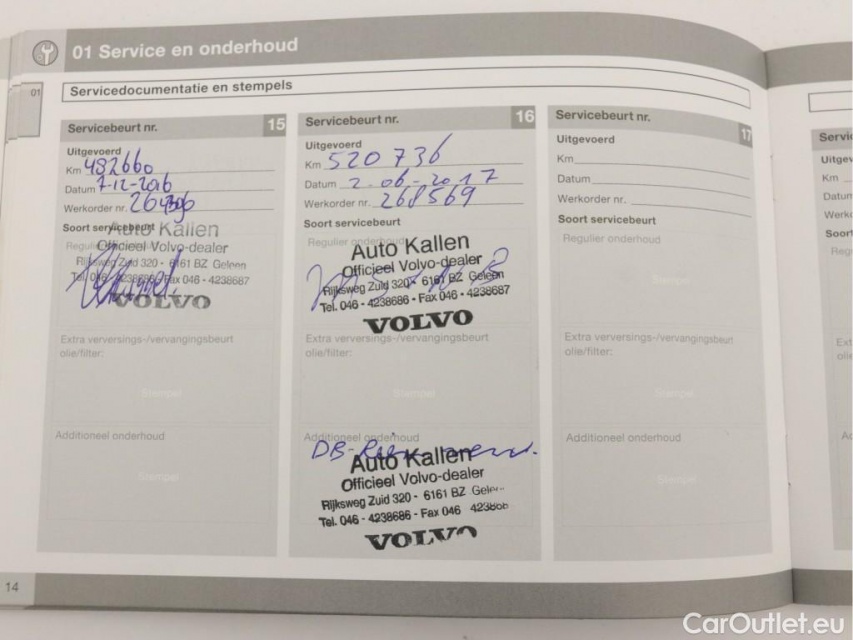 01 Service en onderhoud
01
Servicedocumentatie en stempels
Servicebeurt nr. 15
Uitgevoerd
Km 482660
Datum 7-12-2016
Werkorder nr.
Soort servicebeurt
Auto Kallen
Regulier onderhoud
Officieel Volvo-dealer
Rijksweg Zuid 320 - 6161 BZ Geleen
Tel. 046 - 4238686 - Fax 046 - 4238687
VOLVO
Extra verversings-/vervangingsbeurt
olie/filter:
Stempel
Additioneel onderhoud
Stempel
Servicebeurt nr. 16
Uitgevoerd
Km 520736
Datum 2-06-2017
Werkorder nr. 268569
Soort servicebeurt
Regulier onderhoud
Auto Kallen
Officieel Volvo-dealer
Rijksweg Zuid 320 - 6161 BZ Geleen
Tel. 046 - 4238686 - Fax 046 - 4238687
VOLVO
Extra verversings-/vervangingsbeurt
olie/filter:
Stempel
Additioneel onderhoud
DB-
Auto Kallen
Officieel Volvo-dealer
Rijksweg Zuid 320 - 6161 BZ Geleen
Tel. 046 - 4238686 - Fax 046 423868
VOLVO
Servicebeurt nr. 17
Uitgevoerd
Km
Datum
Werkorder nr.
Soort servicebeurt
Regulier onderhoud
Stempel
Extra verversings-/vervangingsbeurt
olie/filter:
Stempel
Additioneel onderhoud
Stempel
Servic
Uitgev
Km
Datum
Werko
Soort
Regu
Ext
olie
Ad
14
CarOutlet.eu